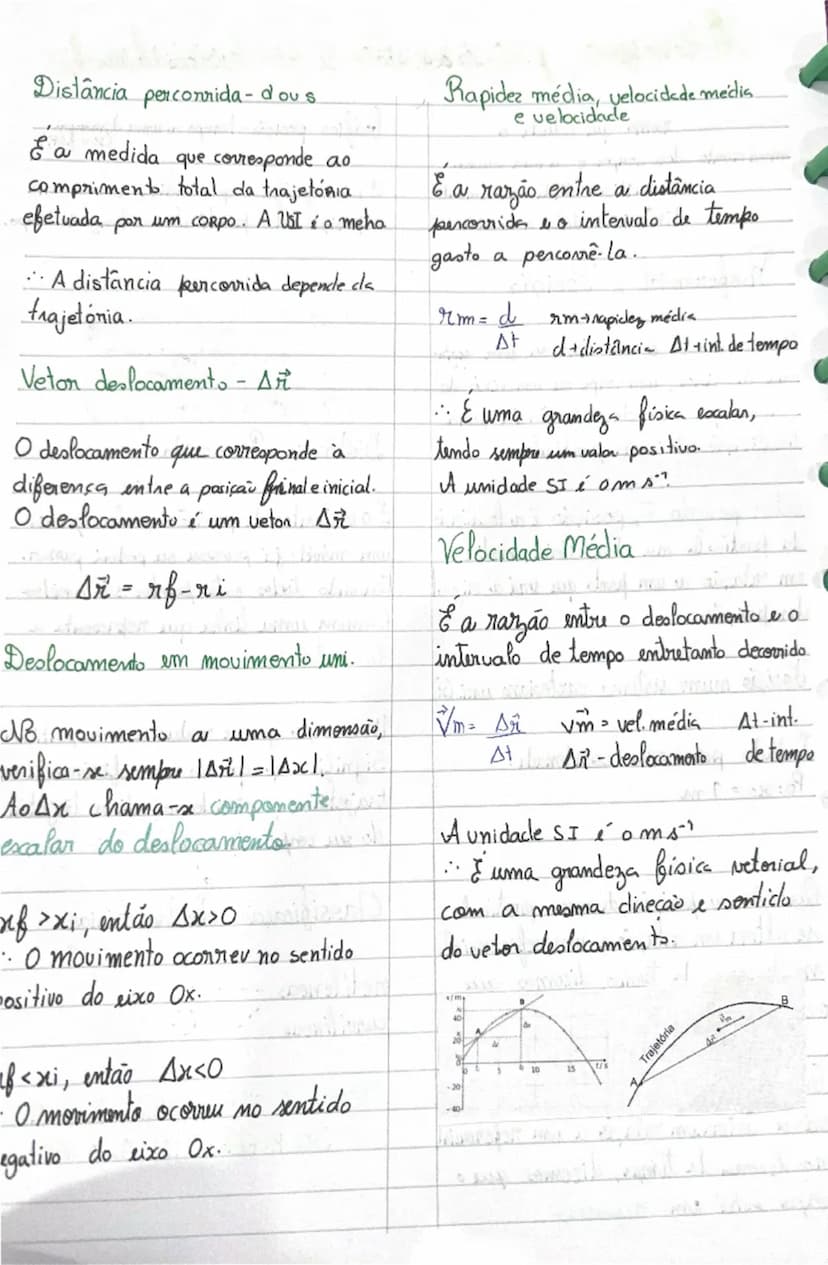 Distância percorrida - d ou s
É a medida que corresponde ao
comprimento total da trajetória
efetuada por um corpo. A USI é o metro
∴ A distância percorrida depende da
trajetória.
Vetor deslocamento - Δr⃗
O deslocamento que corresponde à
diferença entre a posição final e inicial.
O deslocamento é um vetor Δr⃗
Δr⃗ = rf - ri
Deslocamento em movimento uni.
No movimento a uma dimensão,
verifica-se sempre |Δr⃗| = |Δx|.
Ao Δx chama-se componente
escalar do deslocamento.
xf > xi, então Δx>0
∴ O movimento ocorreu no sentido
positivo do eixo Ox.
xf < xi, então Δx<0
∴ O movimento ocorreu no sentido
negativo do eixo Ox.
Rapidez média, velocidade média
e velocidade
É a razão entre a distância
percorrida e o intervalo de tempo
gasto a percorrê-la.
rm = d/Δt rm→rapidez média
d→distância Δt→int. de tempo
∴ É uma grandeza física escalar,
tendo sempre um valor positivo.
A unidade SI é o m s⁻¹.
Velocidade Média
É a razão entre o deslocamento e o
intervalo de tempo entretanto decorrido.
V⃗m = Δr⃗/Δt vm⃗ = vel. média Δt - int.
Δr⃗ - deslocamento de tempo
A unidade SI é o m s⁻¹
∴ É uma grandeza física vetorial,
com a mesma direção e sentido
do vetor deslocamento.
x / m
40
20
0
-20
-40
A
B
Δx
Δt
5
10
15
t / s
Trajetória
A
B
v⃗m
Δr⃗